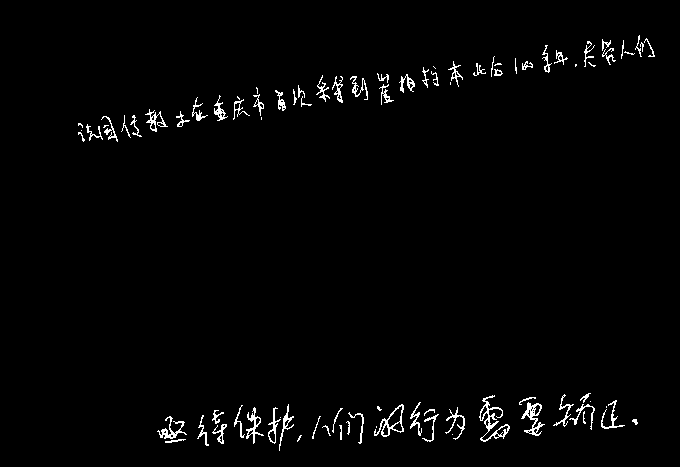 法国传教士在重庆市首次采得到崖柏标本此后100多年,尽管人们
亟待保护,人们的行为需要矫正。